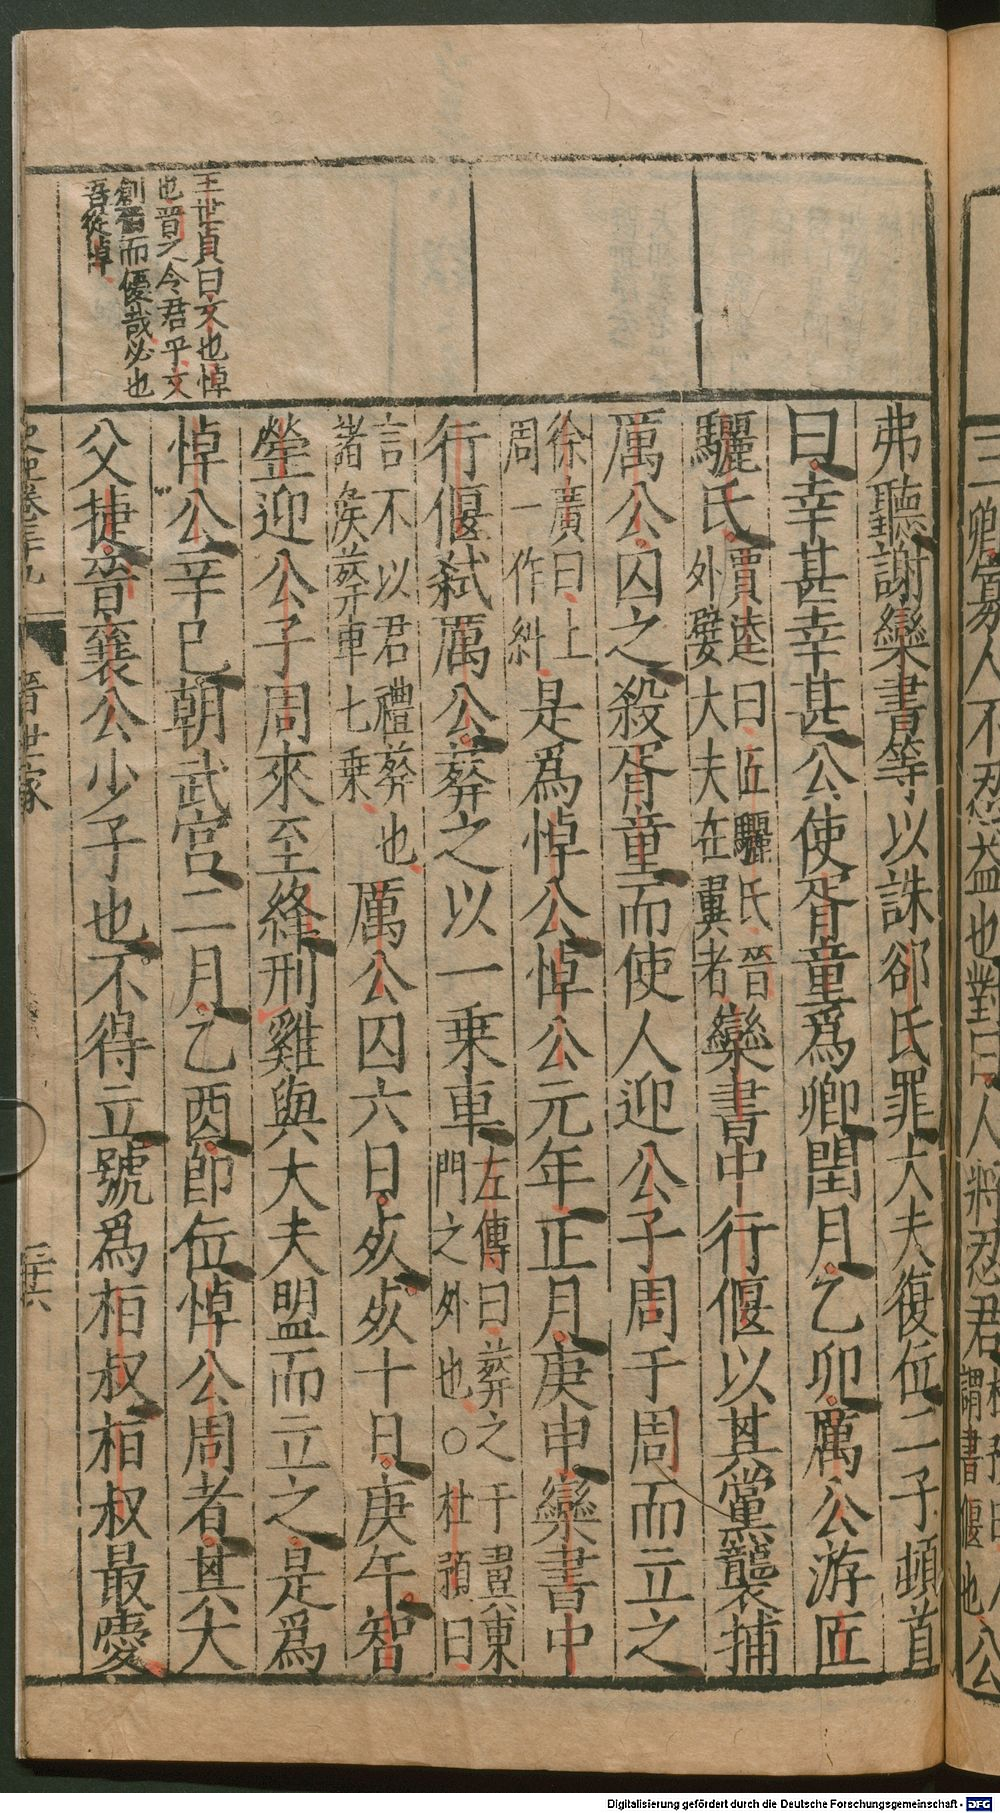 王世貞曰文也悼
也晉之令君乎文
創晉而優哉必也
吾從悼
弗聽謝欒書等以誅郤氏罪大夫復位二子頓首
曰幸甚幸甚公使胥童爲卿閏月乙卯厲公游匠
驪氏賈逵曰匠驪氏晉
外嬖大夫在翼者欒書中行偃以其黨襲捕
厲公囚之殺胥童而使人迎公子周于周而立之
徐廣曰上
周一作糾是爲悼公悼公元年正月庚申欒書中
行偃弑厲公葬之以一乗車左傳曰葬之于翼東
門之外也○杜預曰
言不以君禮葬也
諸矦葬車七乗厲公囚六日死死十日庚午智
罃迎公子周來至絳刑雞與大夫盟而立之是爲
悼公辛巳朝武宮二月乙酉即位悼公周者其大
父捷晉襄公少子也不得立號爲桓叔桓叔最愛
史記卷三十九 晉世家 三十六
三卿寡人不忍益也對曰人將忍君
謂書偃也公
Digitalisierung gefördert durch die Deutsche Forschungsgemeinschaft - DFG